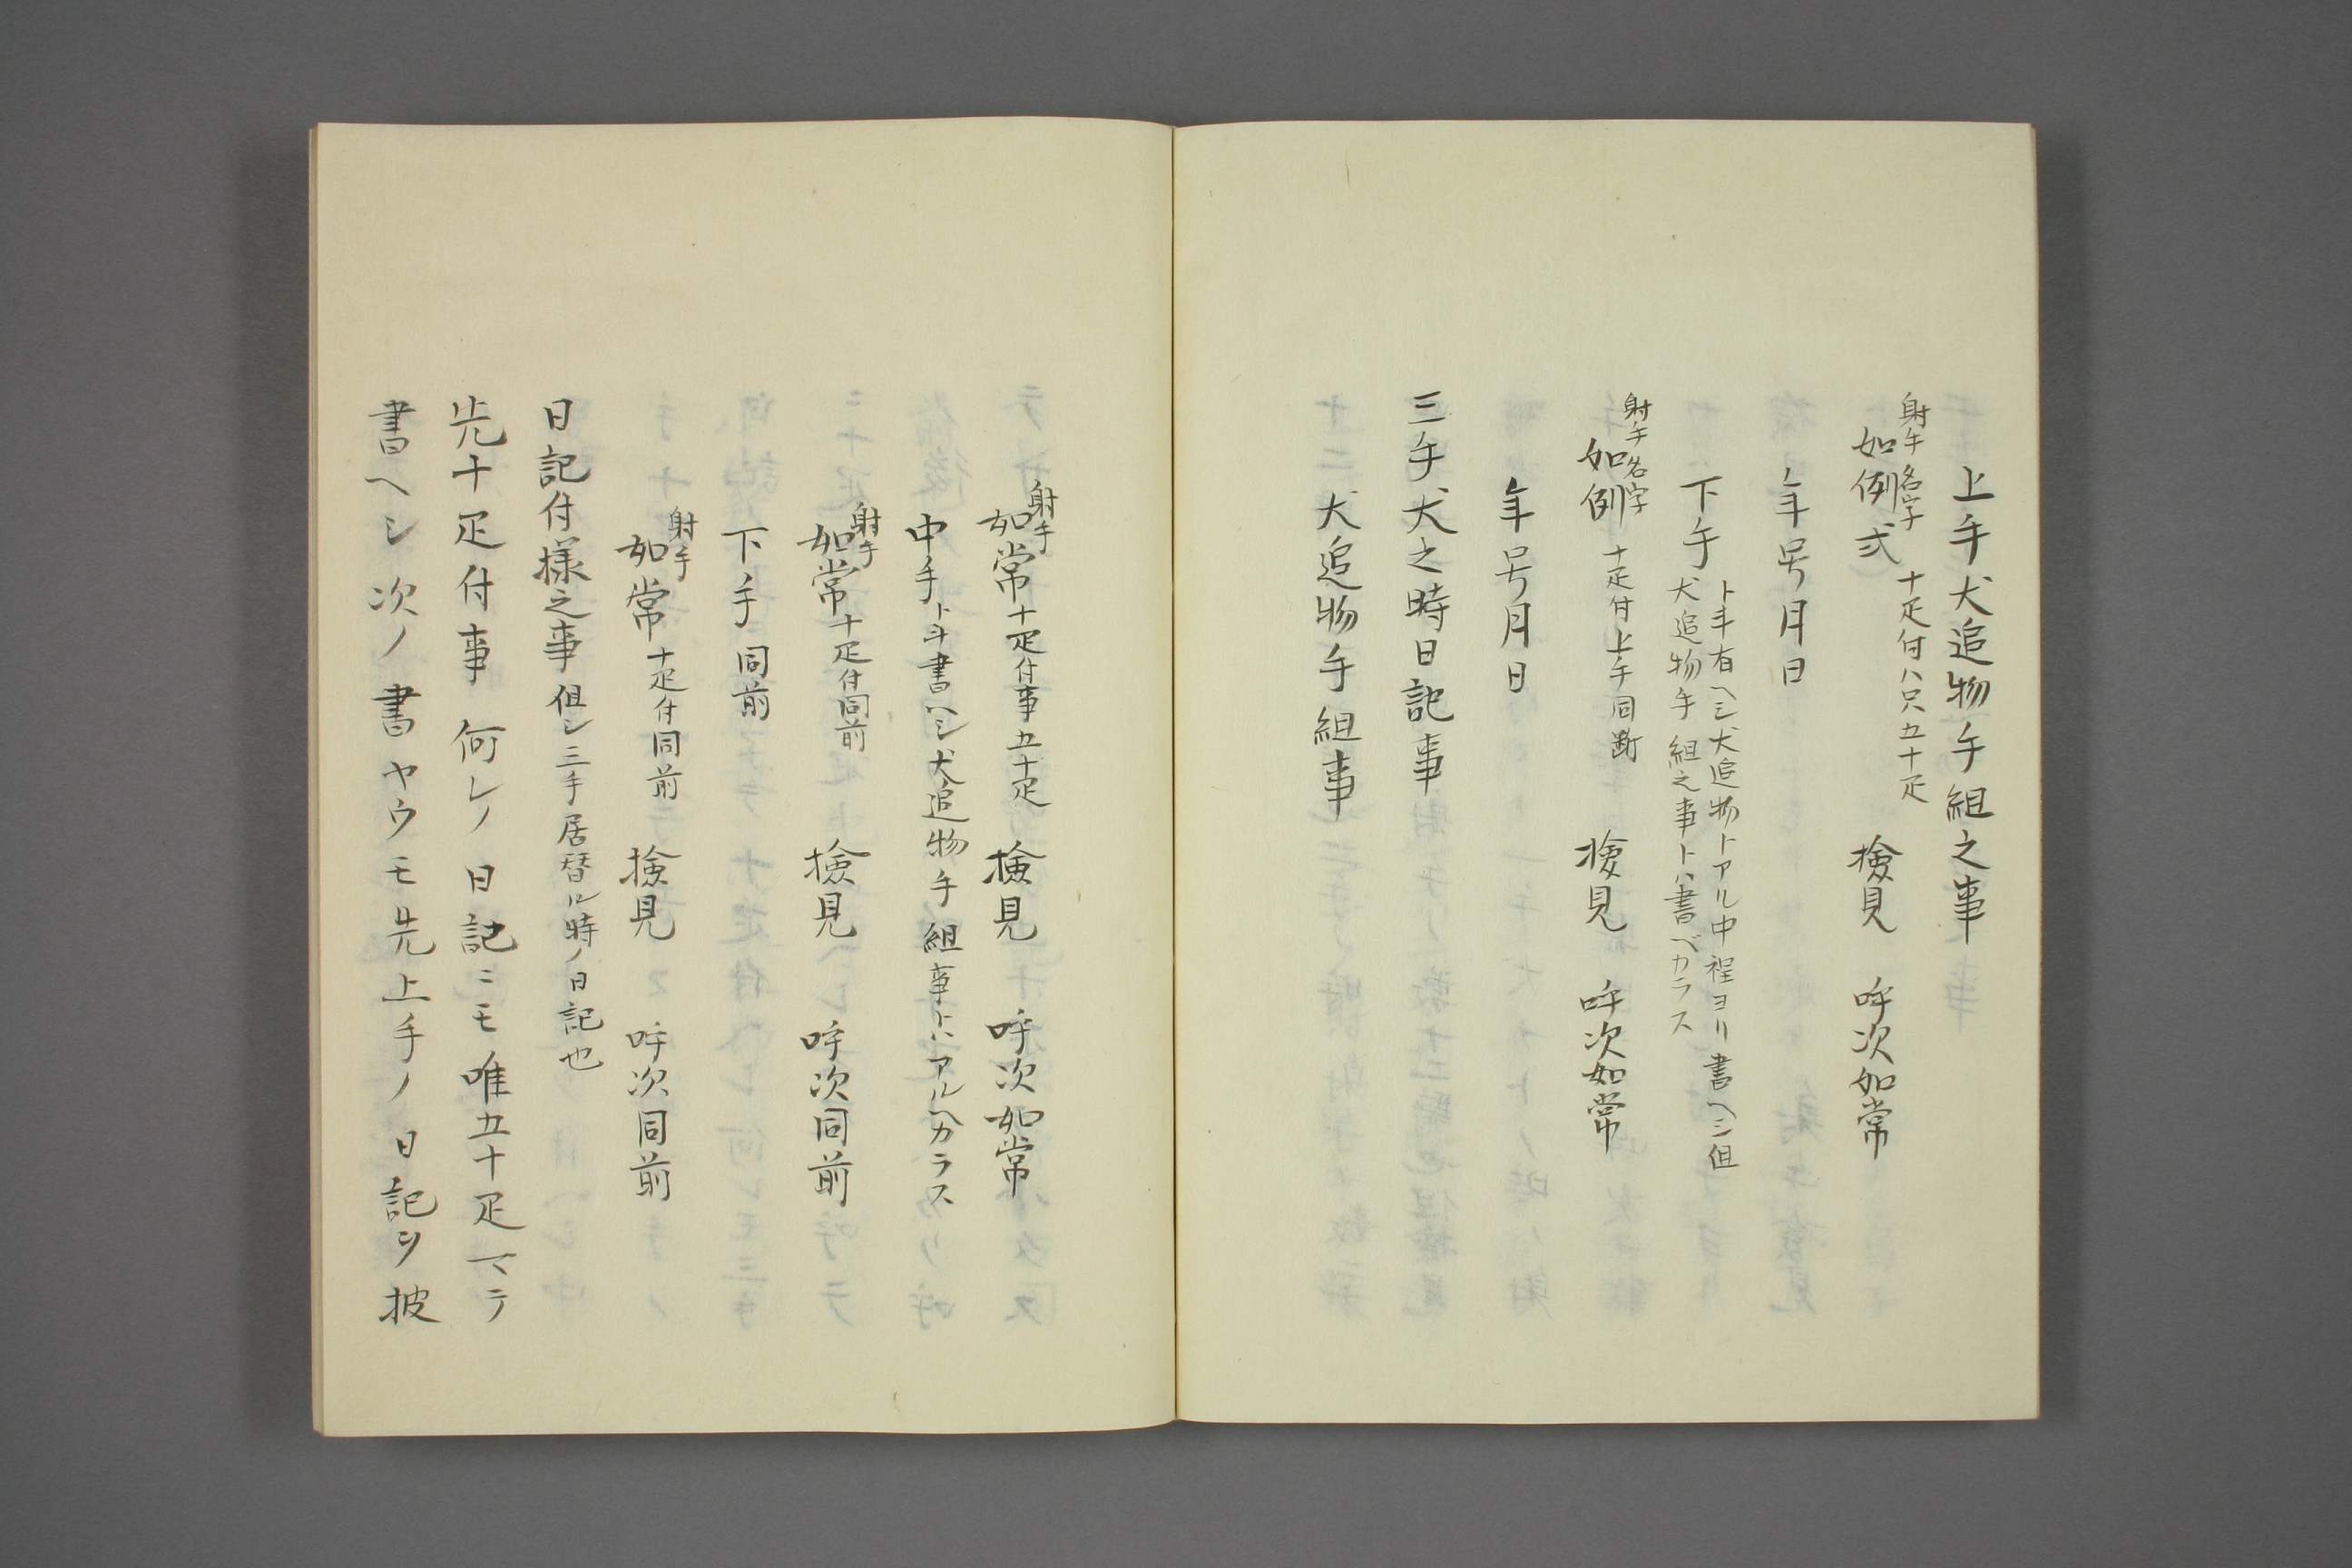 上手犬追物手組之事
射手名字
如例式 十疋付ハ只五十疋 検見 呼次如常
年号月日
下手 ト斗有ヘシ犬追物トアル中程ヨリ書ヘシ但
犬追物手組之事トハ書ベカラス
射手名字
如例 十疋付上手同断 検見 呼次如常
年号月日
三手犬之時日記事
犬追物手組事
射手
如常 十疋付事五十疋 検見 呼次如常
中手 ト斗書ヘシ犬追物手組事トハアルヘカラス
射手
如常 十疋付同前 検見 呼次同前
下手 同前
射手
如常 十疋付同前 検見 呼次同前
日記付様之事 但シ三手居替ル時ノ日記也
先十疋付事何レノ日記ニモ唯五十疋マテ
書ヘシ次ノ書ヤウモ先上手ノ日記ヲ披